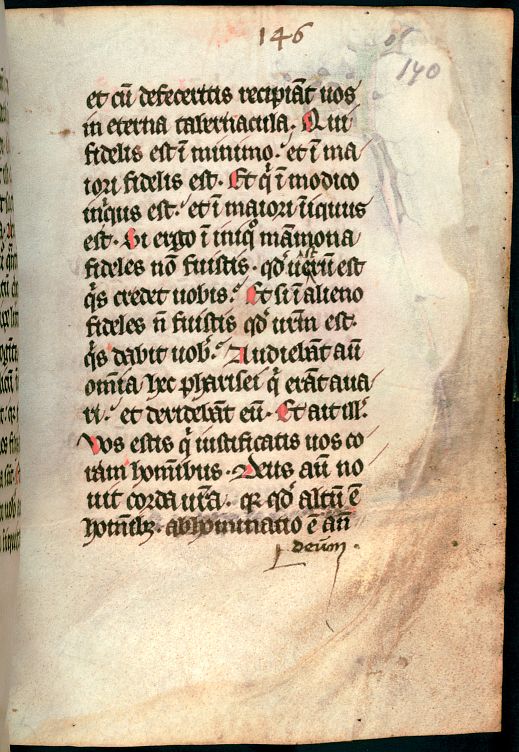 146
140
et cū defeceritis recipiāt uos
in eterna tabernacula. Qui
fidelis est ī minimo. et ī ma
iori fidelis est. Et q̄ ī modico
iniquus est. et ī maiori īiquus
est. Si ergo ī iniqͦ māmona
fideles nō fuistis. qd̄ uerū est
q̄s credet uobis. Et si ī alieno
fideles n̄ fuistis qd̄ urm̄ est.
q̄s dabit uob. Audiebāt aū
omīa hec pharisei q̄ erāt aua
ri. et deridebāt eū. Et ait ill.
Vos estis q̄ iustificatis uos co
ram homībus. Deus aū no
uit corda ura. qꝛ qd̄ altū ē
homībꝫ. abhominatio ē añ
deum.